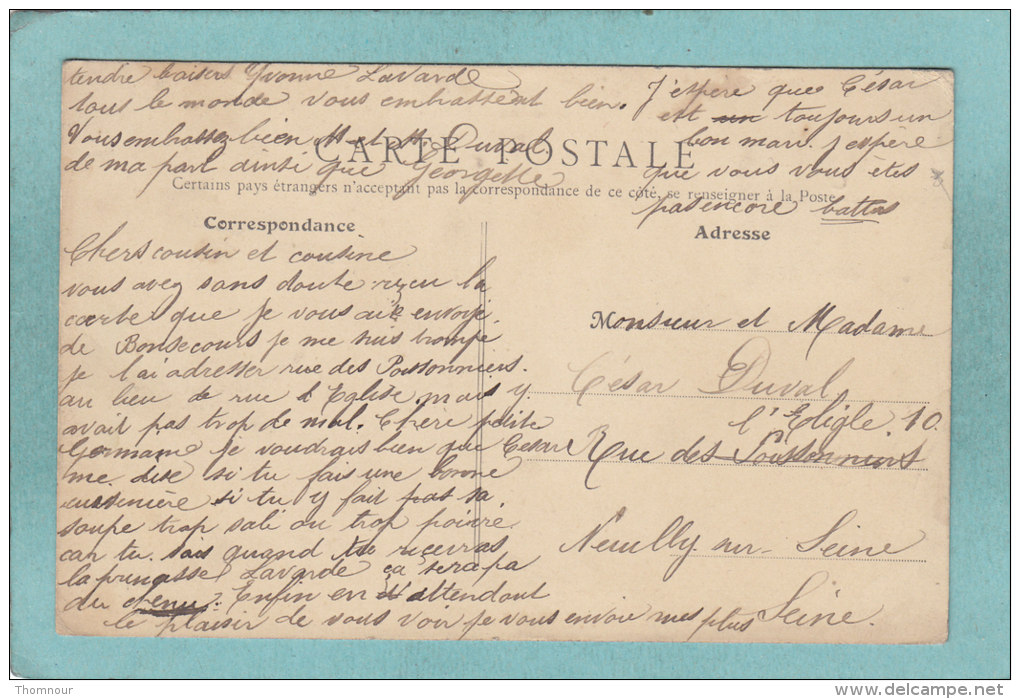 tendre baisers Yvonne Lavarde
tous le monde vous embrassent bien.
Vous embrassez bien M et Me Duval
de ma part ainsi que Georgette
J'espère que César
est un toujours un
bon mari. j'espère
que vous vous êtes
pas encore battus
CARTE POSTALE
Certains pays étrangers n'acceptant pas la correspondance de ce côté, se renseigner à la Poste
Correspondance
Chers cousin et cousine
vous avez sans doute reçu la
carte que je vous ai envoyé
de Bonsecours je me suis trompé
je l'ai adresser rue des Poissonniers.
au lieu de rue de l'Eglise mais y
avait pas trop de mal. Chère petite
Germaine je voudrais bien que Cesar
me dise si tu fais une bonne
cuisinière si tu y fait pas sa
soupe trop salé ou trop poivré
car tu sais quand tu recevras
la princesse Lavarde ça sera pa
du chenu. Enfin en attendant
le plaisir de vous voir je vous envoie mes plus
Adresse
Monsieur et Madame
César Duval
l'Eligle 10
Rue des Poissonniers
Neuilly sur Seine
Seine.
Thomnour
http://www.delcampe.net